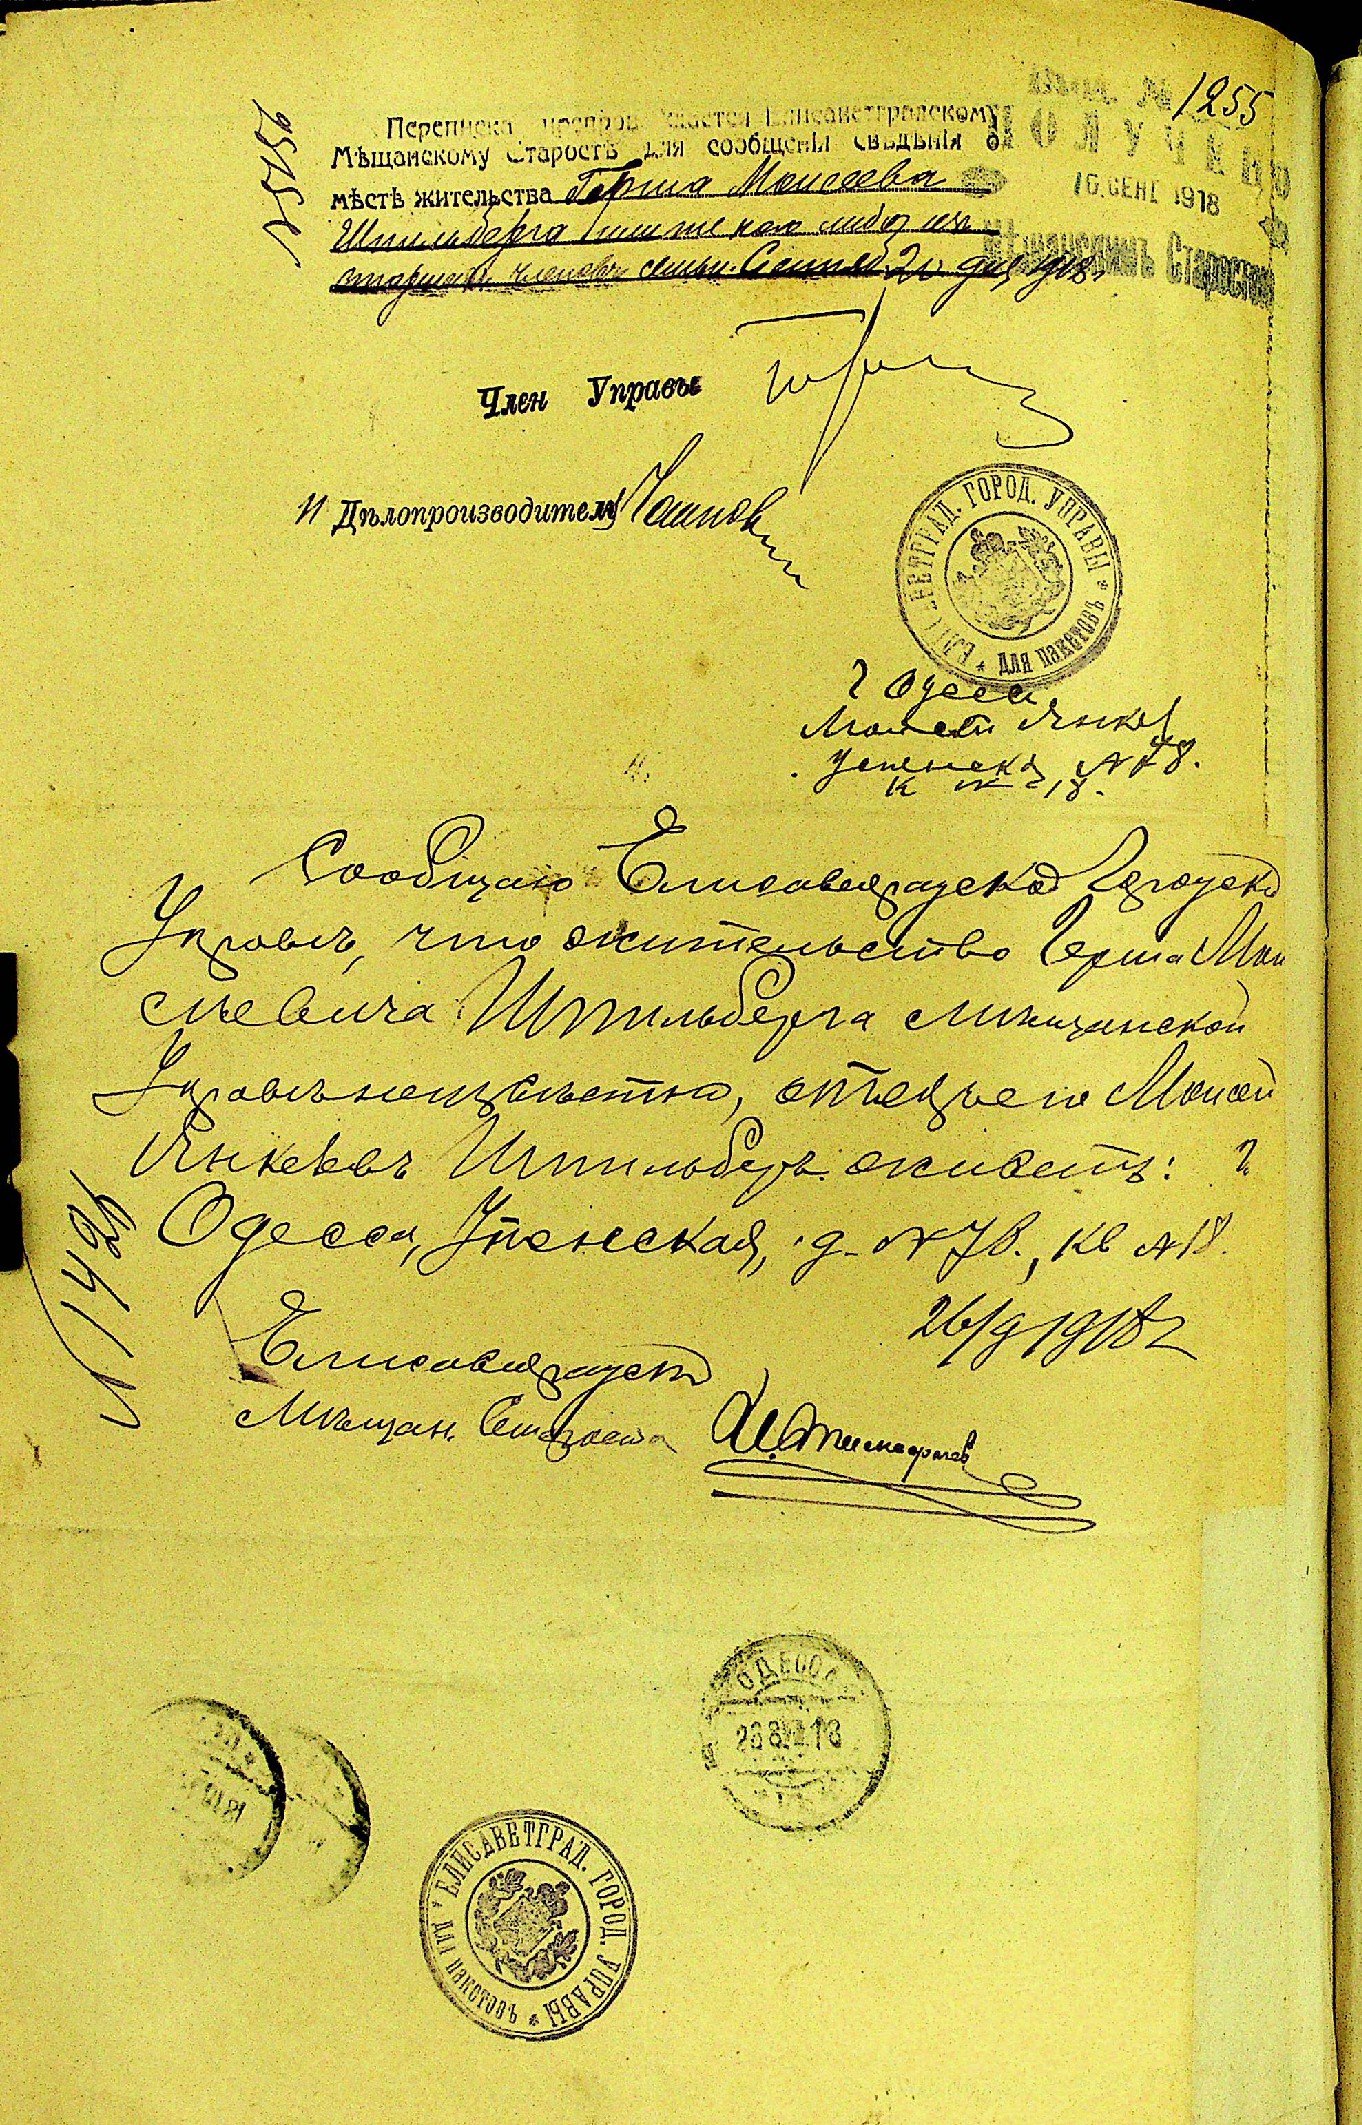 1255
25156
Переписка препровождается Елисаветградскому
Мѣщанскому Старостѣ для сообщенія свѣдѣнія о
мѣстѣ жительства Герша Моисеева
Шпильберга или же кого либо изъ
старшихъ членовъ семьи. Сентяб. 20 дня 1918 г.
ПОЛУЧЕНО
16. СЕНТ 1918
Мѣщанскимъ Старостою
Членъ Управы
И Дѣлопроизводитель
ЕЛИСАВЕТГРАД. ГОРОД. УПРАВЫ * для пакетовъ *
г Одесса
Моисей Янкел
Успенская, № 78.
к № 18.
Сообщаю Елисаветградской Городской
Управѣ, что жительство Герша Мои
сѣевича Шпильберга Мѣщанской
Управѣ неизвѣстно, отецъ его Моисей
Янкелевъ Шпильбергъ живетъ: г.
Одесса, Успенская, д. № 78., кв № 18.
26/9 1918 г
№ 1426
Елисаветградскій
Мѣщан. Староста
ОДЕССА
ЕЛИСАВЕТГРАД. ГОРОД. УПРАВЫ * для пакетовъ *